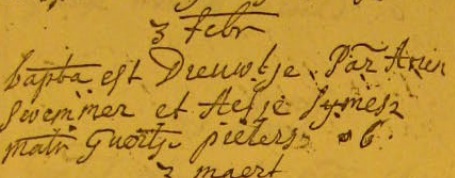 3 febr
bapta est Dieuwtje. Par Arien
Swemmer et Aeltje Sijmesz
matr Guertje pieters 6
3 maert